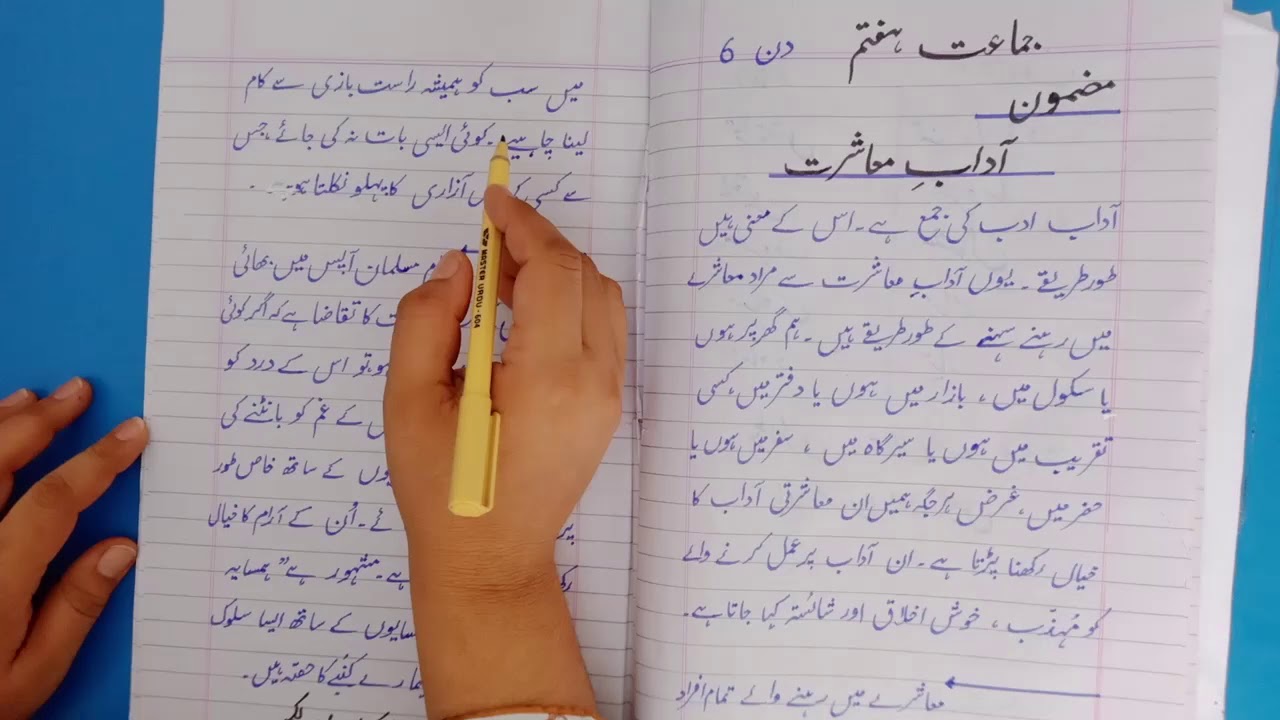 جماعت ہفتم دن 6
مضمون
آدابِ معاشرت
آداب ادب کی جمع ہے۔ اس کے معنی ہیں
طور طریقے۔ یوں آدابِ معاشرت سے مراد معاشرے
میں رہنے سہنے کے طور طریقے ہیں۔ ہم گھر پر ہوں
یا سکول میں، بازار میں ہوں یا دفتر میں، کسی
تقریب میں ہوں یا سیر گاہ میں، سفر میں ہوں یا
حضر میں، غرض ہر جگہ ہمیں ان معاشرتی آداب کا
خیال رکھنا پڑتا ہے۔ ان آداب پر عمل کرنے والے
کو مُہذّب، خوش اخلاق اور شائستہ کہا جاتا ہے۔
معاشرے میں رہنے والے تمام افراد
میں سب کو ہمیشہ راست بازی سے کام
لینا چاہیے۔ کوئی ایسی بات نہ کی جائے، جس
سے کسی آزاری کا پہلو نکلتا ہو۔
مسلمان آپس میں بھائی
کا تقاضا ہے کہ اگر کوئی
ہو تو اس کے درد کو
کے غم کو بانٹنے کی
کے ساتھ خاص طور
پر اُن کے آرام کا خیال
ہے۔ مشہور ہے "ہمسایہ
کے ساتھ ایسا سلوک
کُنبے کا حصّہ ہیں۔
MASTER URDU-604